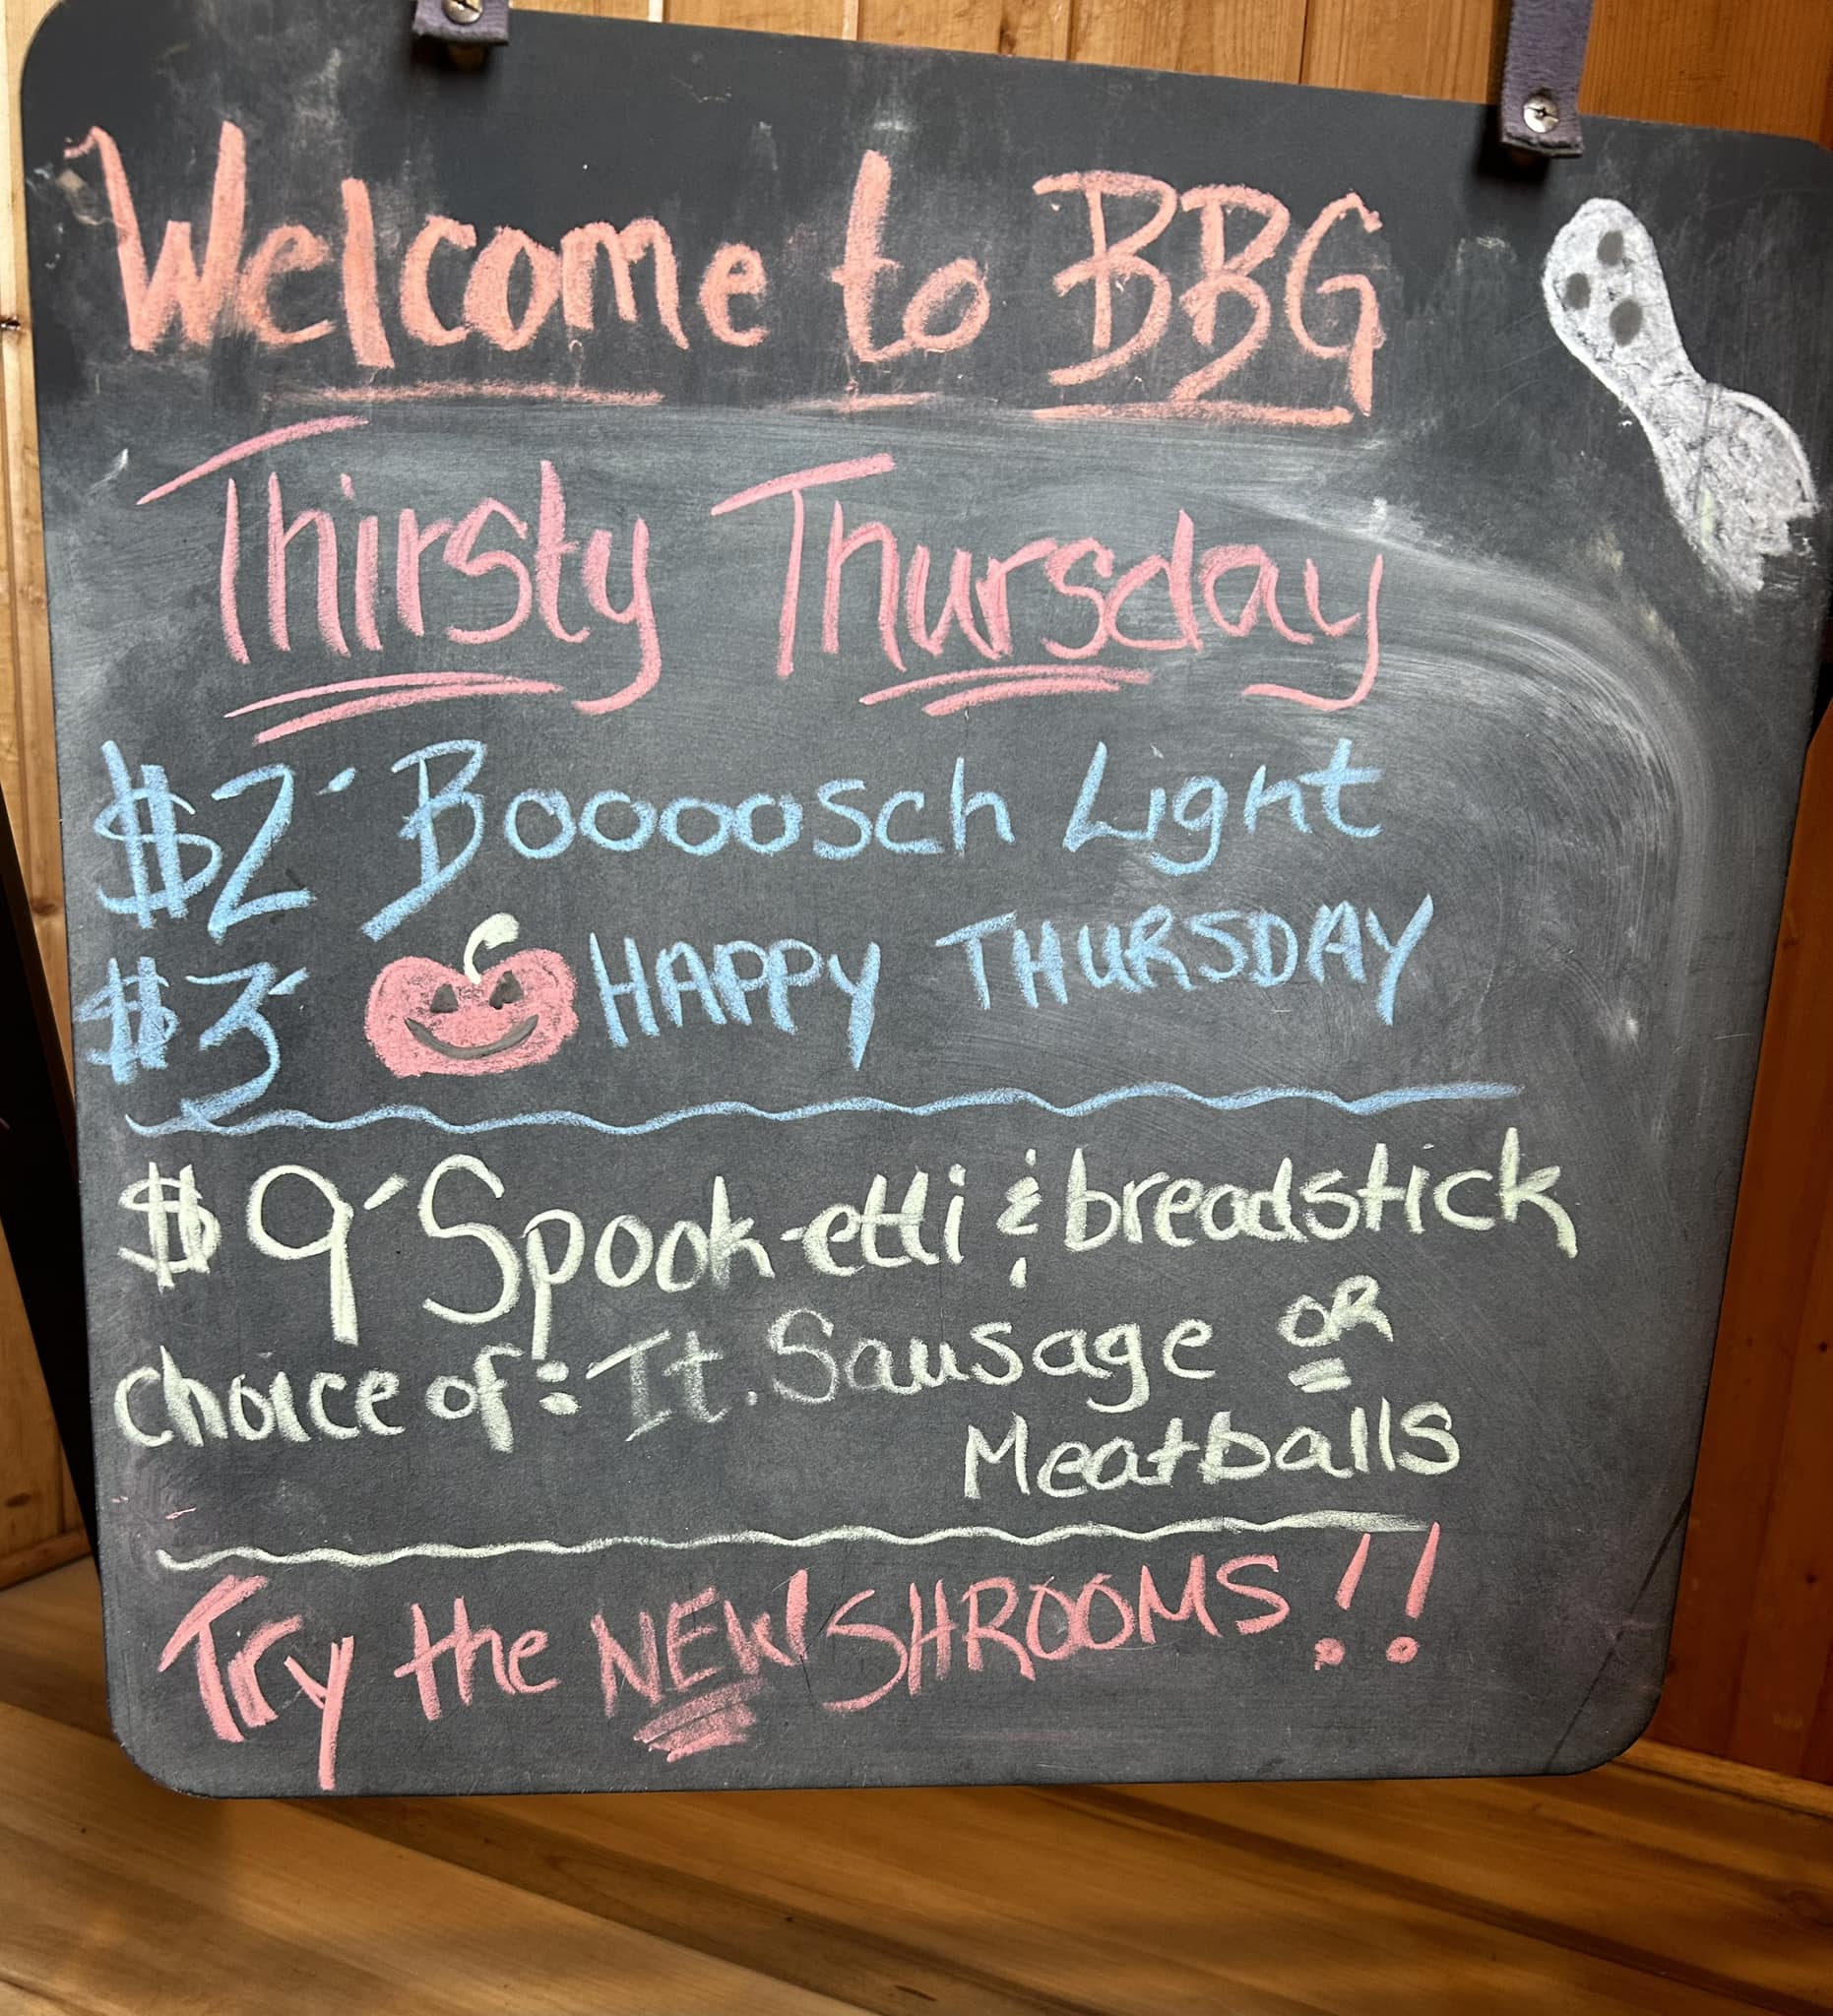 Welcome to BBG
Thirsty Thursday
$2 Boooosch Light
$3 HAPPY THURSDAY
$9 Spook-etti & breadstick
choice of: It. Sausage OR
Meatballs
Try the NEW SHROOMS!!